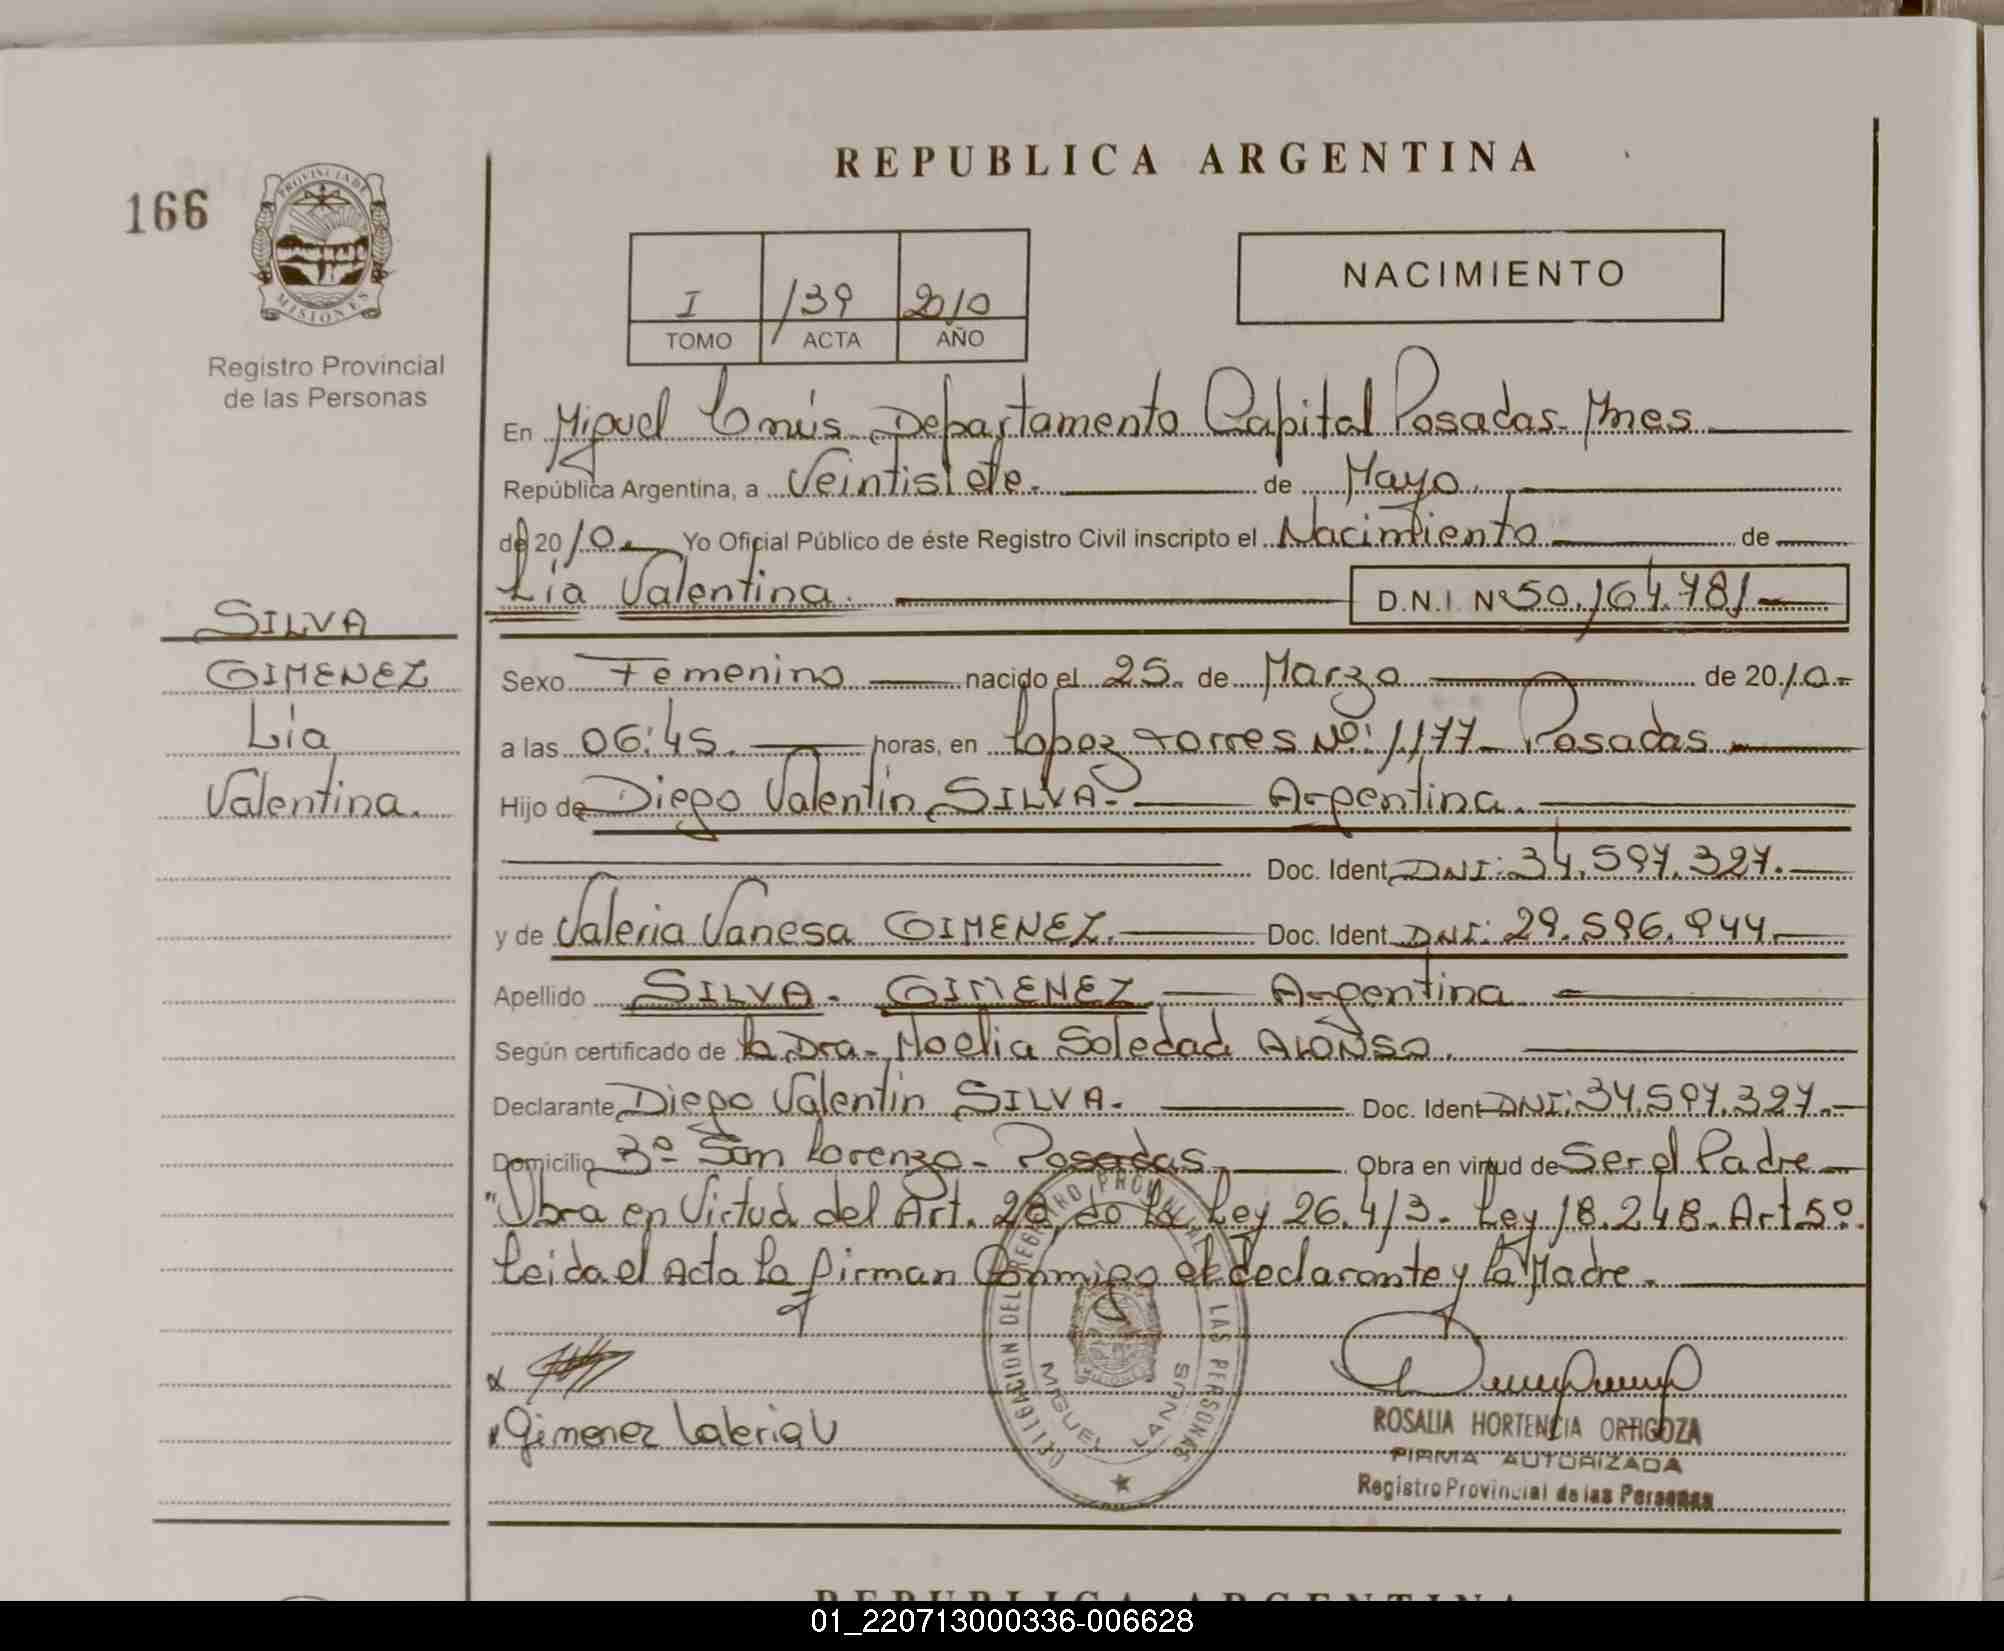 REPUBLICA ARGENTINA
166
PROVINCIA DE
MISIONES
Registro Provincial
de las Personas
I /39 2010
TOMO ACTA AÑO
NACIMIENTO
En Miguel Lanús Departamento Capital Posadas - Mnes
República Argentina, a Veintisiete. de Mayo
de 2010. Yo Oficial Público de éste Registro Civil inscripto el Nacimiento de
Lía Valentina. D.N.I. Nº 50.164.781
SILVA
GIMENEZ
Lía
Valentina.
Sexo Femenino nacido el 25. de Marzo de 2010.
a las 06:45. horas, en Lopez torres Nº: 1177 - Posadas
Hijo de Diego Valentín SILVA. Argentina.
Doc. Ident. DNI: 34.597.327.
y de Valeria Vanesa GIMENEZ. Doc. Ident. DNI: 29.596.944
Apellido SILVA - GIMENEZ. Argentina
Según certificado de la Dra. Noelia Soledad ALONSO.
Declarante Diego Valentín SILVA. Doc. Ident DNI: 34.597.327.
Domicilio 3º San Lorenzo - Posadas. Obra en virtud de Ser el Padre
"Obra en Virtud del Art. de la Ley 26.413 - Ley 18.248. Art 5º.
Leida el Acta la firman Conmigo el declarante y la Madre.
x
x Gimenez Valeria V
DELEGACION DEL REGISTRO PROVINCIAL DE LAS PERSONAS
MIGUEL LANUS
ROSALIA HORTENCIA ORTIGOZA
FIRMA AUTORIZADA
Registro Provincial de las Personas
REPUBLICA ARGENTINA
01_220713000336-006628